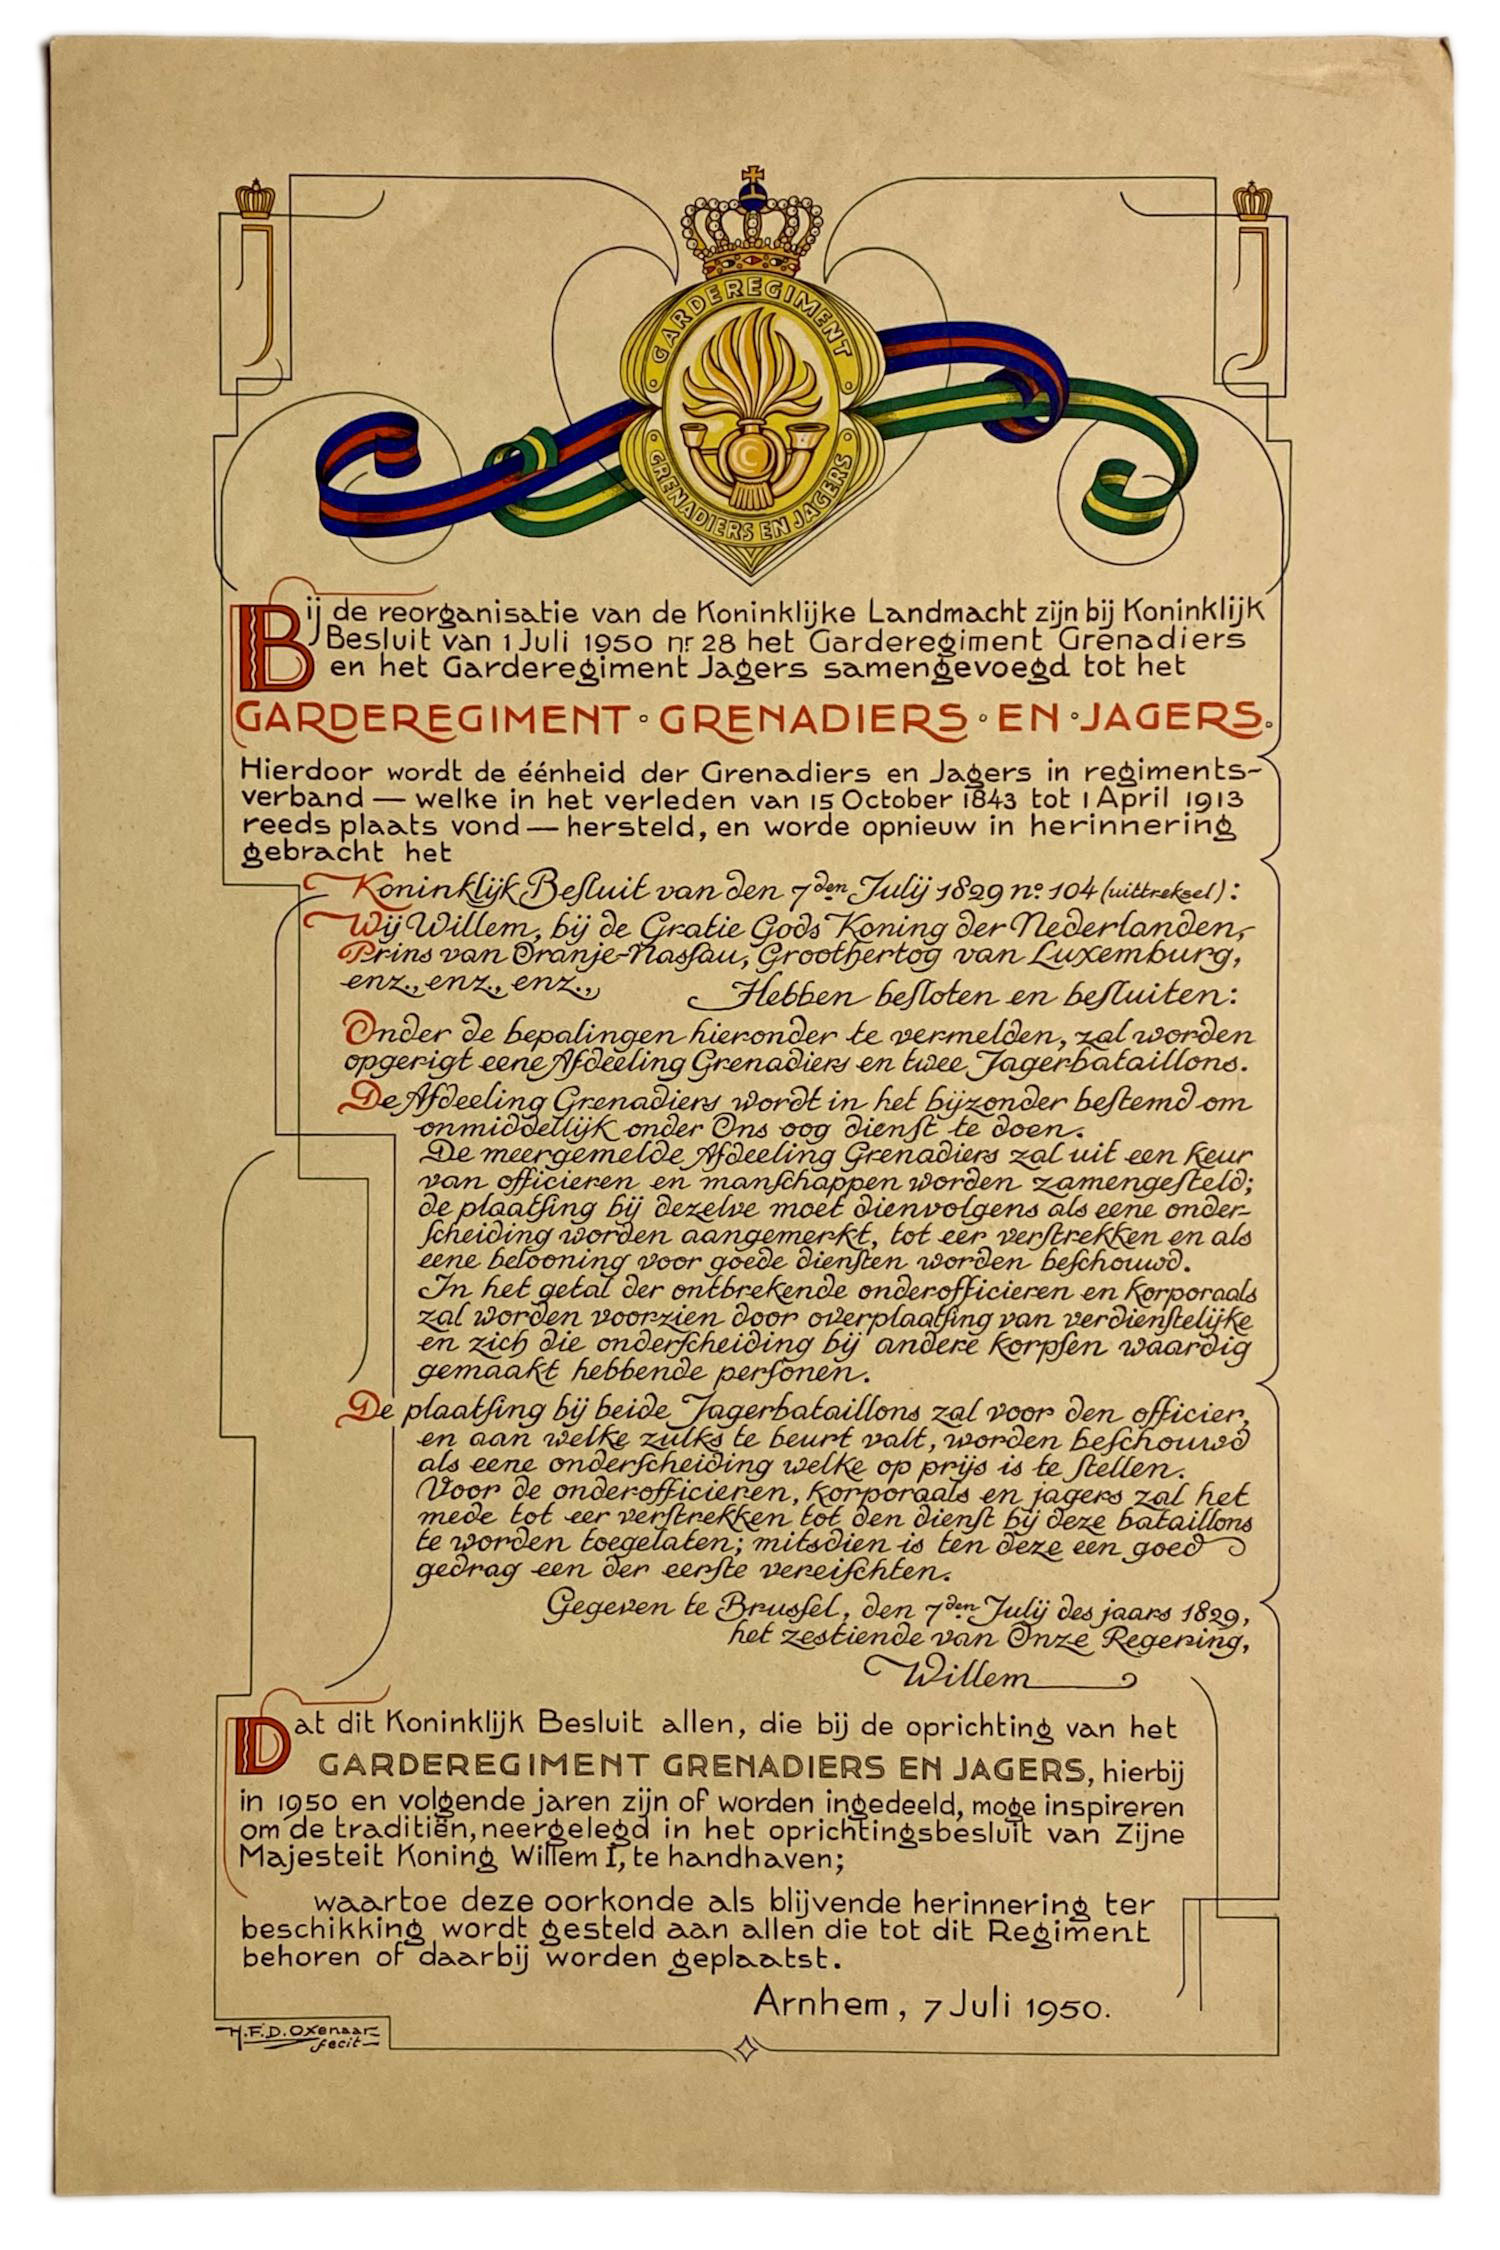 J
J
GARDEREGIMENT
C
GRENADIERS EN JAGERS
Bij de reorganisatie van de Koninklijke Landmacht zijn bij Koninklijk
Besluit van 1 Juli 1950 nr 28 het Garderegiment Grenadiers
en het Garderegiment Jagers samengevoegd tot het
GARDEREGIMENT · GRENADIERS · EN · JAGERS.
Hierdoor wordt de éénheid der Grenadiers en Jagers in regiments-
verband — welke in het verleden van 15 October 1843 tot 1 April 1913
reeds plaats vond — hersteld, en worde opnieuw in herinnering
gebracht het
Koninklijk Besluit van den 7den Julij 1829 no. 104 (uittreksel):
Wij Willem, bij de Gratie Gods Koning der Nederlanden,
Prins van Oranje-Nassau, Groothertog van Luxemburg,
enz., enz., enz., Hebben besloten en besluiten:
Onder de bepalingen hieronder te vermelden, zal worden
opgerigt eene Afdeeling Grenadiers en twee Jagerbataillons.
De Afdeeling Grenadiers wordt in het bijzonder bestemd om
onmiddellijk onder Ons oog dienst te doen.
De meergemelde Afdeeling Grenadiers zal uit een keur
van officieren en manschappen worden zamengesteld;
de plaatsing bij dezelve moet dienvolgens als eene onder-
scheiding worden aangemerkt, tot eer verstrekken en als
eene belooning voor goede diensten worden beschouwd.
In het getal der ontbrekende onderofficieren en korporaals
zal worden voorzien door overplaatsing van verdienstelijke
en zich die onderscheiding bij andere korpsen waardig
gemaakt hebbende personen.
De plaatsing bij beide Jagerbataillons zal voor den officier,
en aan welke zulks te beurt valt, worden beschouwd
als eene onderscheiding welke op prijs is te stellen.
Voor de onderofficieren, korporaals en jagers zal het
mede tot eer verstrekken tot den dienst bij deze bataillons
te worden toegelaten; mitsdien is ten deze een goed
gedrag een der eerste vereischten.
Gegeven te Brussel, den 7den Julij des jaars 1829,
het zestiende van Onze Regering,
Willem
Dat dit Koninklijk Besluit allen, die bij de oprichting van het
GARDEREGIMENT GRENADIERS EN JAGERS, hierbij
in 1950 en volgende jaren zijn of worden ingedeeld, moge inspireren
om de traditiën, neergelegd in het oprichtingsbesluit van Zijne
Majesteit Koning Willem I, te handhaven;
waartoe deze oorkonde als blijvende herinnering ter
beschikking wordt gesteld aan allen die tot dit Regiment
behoren of daarbij worden geplaatst.
Arnhem, 7 Juli 1950.
H.F.D. Oxenaar
fecit